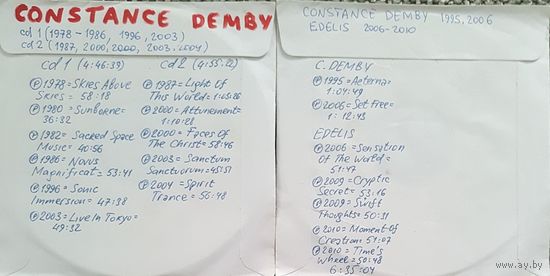 CONSTANCE DEMBY
cd 1 (1978-1986, 1996, 2003)
cd 2 (1987, 2000, 2000, 2003, 2004)
cd 1 (4:46:39)
Ⓟ 1978 = Skies Above
Skies = 58:18
Ⓟ 1980 = Sunborne =
36:32
Ⓟ 1982 = Sacked Space
Music = 40:56
Ⓟ 1986 = Novus
Magnificat = 53:41
Ⓟ 1996 = Sonic
Immersion = 47:38
Ⓟ 2003 = Live In Tokyo =
49:32
cd 2 (4:55:22)
Ⓟ 1987 = Light Of
This World = 1:05:26
Ⓟ 2000 = Attunement =
1:10:28
Ⓟ 2000 = Faces Of
The Christ = 58:46
Ⓟ 2003 = Sanctum
Sanctuorum = 45:51
Ⓟ 2004 = Spirit
Trance = 56:48
CONSTANCE DEMBY 1995, 2006
EDELIS 2006-2010
C. DEMBY
Ⓟ 1995 = Aeterna =
1:04:49
Ⓟ 2006 = Set Free =
1:12:43
EDELIS
Ⓟ 2006 = Sensation
Of The World =
51:47
Ⓟ 2009 = Cryptic
Secret = 53:16
Ⓟ 2009 = Swift
Thoughts = 50:31
Ⓟ 2010 = Moment Of
Creation = 51:07
Ⓟ 2010 = Time's
Wheel = 50:48
6:35:04
www.ay.by